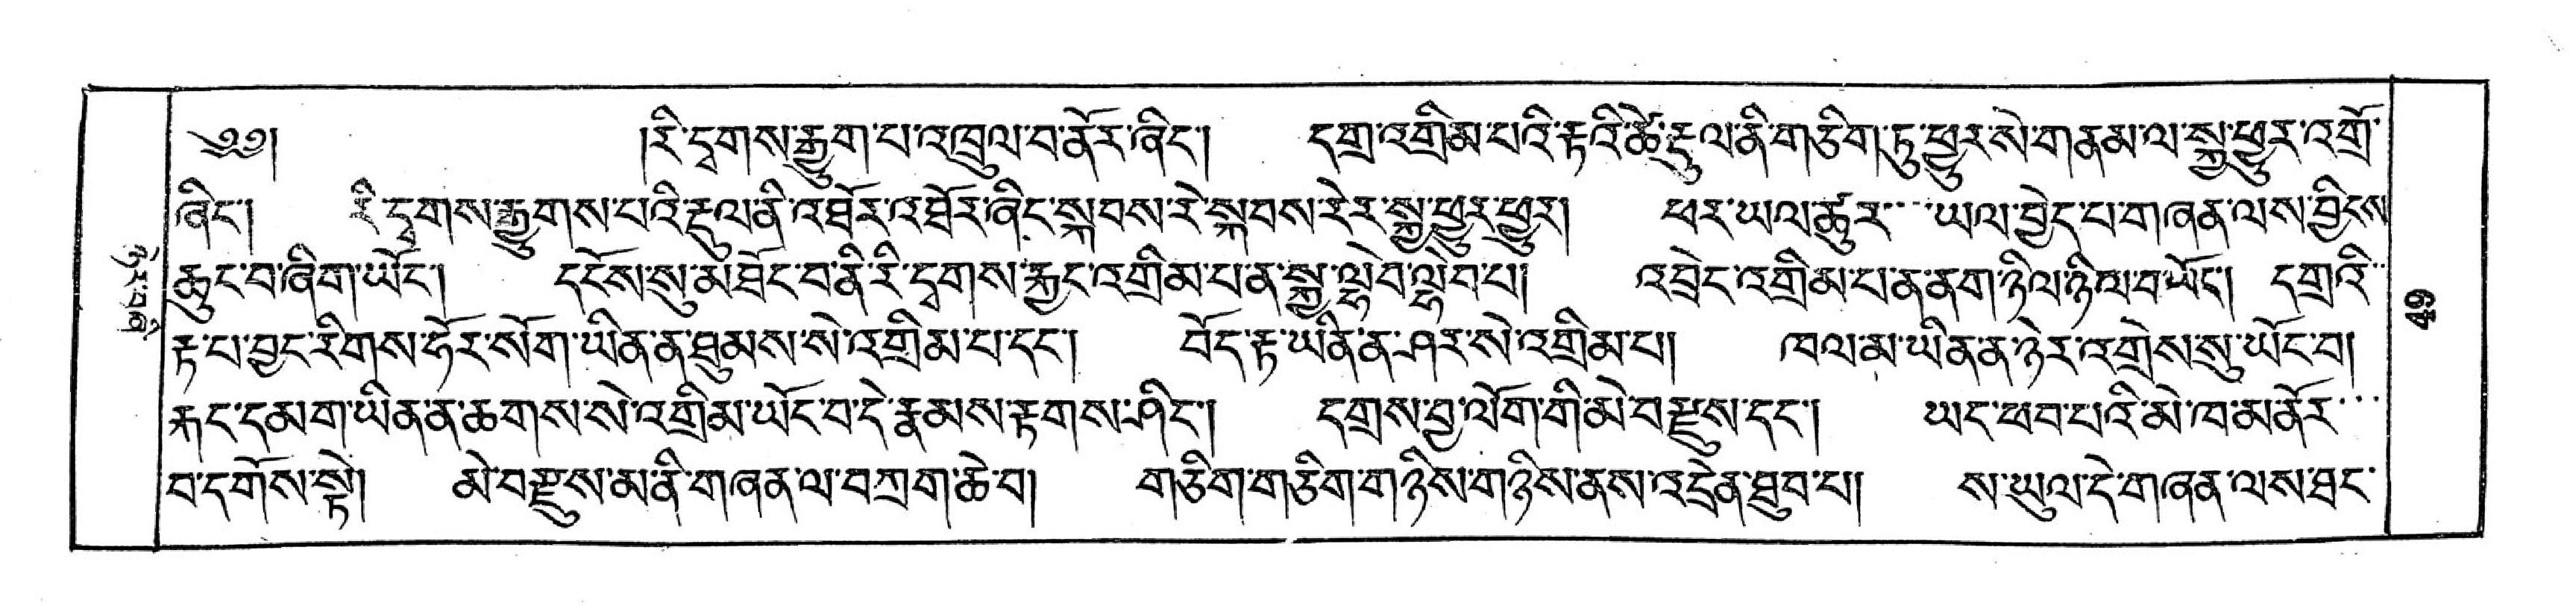 ༄༅། །རི་དྭགས་རྒྱུག་པ་འཁྲུལ་བ་ནོར་ཞིང་། དགྲ་འགྲིམ་པའི་རྟའི་ཚེ་རྡུལ་ནི་གཅིག་ཏུ་ཕྱུར་སེ་གནམ་ལ་སྐྱ་ཕྱུར་འགྲོ་
ཞིང་། རི་དྭགས་རྒྱུགས་པའི་རྡུལ་ནི་འཐོར་འཐོར་ཞིང་སྐབས་རེ་སྐབས་རེར་སྐྱ་ཕྱུར་ཕྱུར། ཕར་ཡལ་ཚུར་ཡལ་བྱེད་པ་གཞན་ལས་བྱིངས་
ཆུང་བ་ཞིག་ཡོང་། དངོས་སུ་མཐོང་བ་ནི་རི་དྭགས་རྐྱང་འགྲིམ་པ་ན་སྐྱ་ལྷེབ་ལྷེབ་པ། འབྲེང་འགྲིམ་པ་ན་ནག་ཉིལ་ཉིལ་བ་ཡོང་། དགྲའི་
རྟ་པ་བྱང་རིགས་ཧོར་སོག་ཡིན་ན་ཐུམས་སེ་འགྲིམ་པ་དང་། བོད་རྟ་ཡིན་ན་ཤར་སེ་འགྲིམ་པ། ཁལ་མ་ཡིན་ན་ཉེར་འགྲེས་སུ་ཡོང་བ།
རྐང་དམག་ཡིན་ན་ཆགས་སེ་འགྲིམ་ཡོང་བ་དེ་རྣམས་རྟགས་ཤིང་། དགྲས་བྱ་ལོག་གི་མེ་བསྔུས་དང་། ཡང་ཕབ་པའི་མེ་ཁ་མ་ནོར་
བ་དགོས་སྟེ། མེ་བསྔུས་མ་ནི་གཞན་ལ་བཀྲག་ཆེ་བ། གཅིག་གཅིག་གཉིས་གཉིས་ནས་འདྲེན་ཐུབ་པ། ས་ཡུལ་དེ་གཞན་ལས་ཐང་